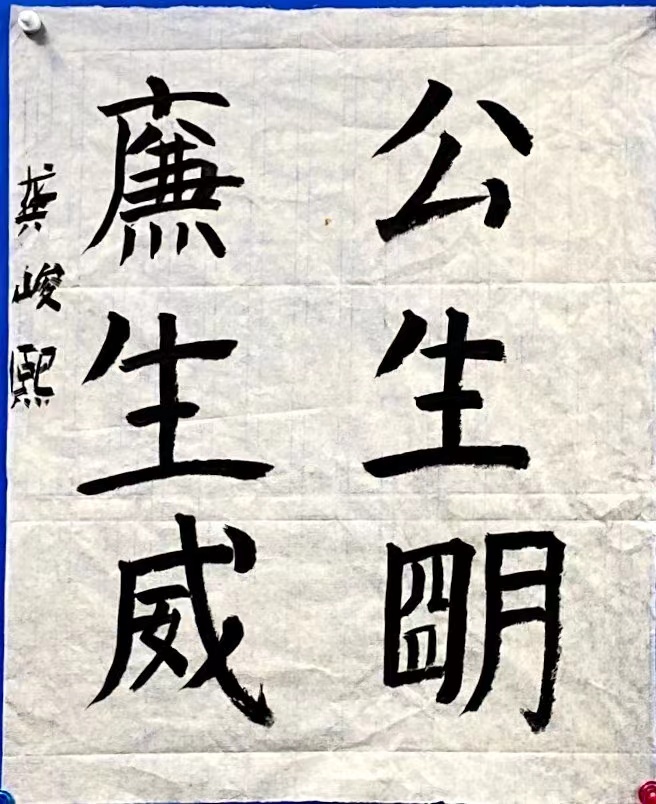 公生明
廉生威
龚峻熙